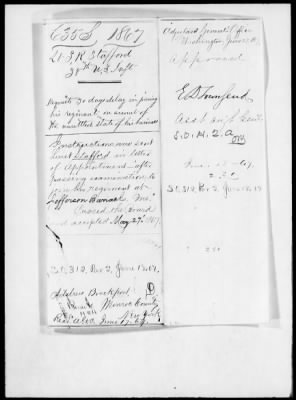 635 S 1867
Lt. S. R. Stafford
38th U.S. Inft.
Requests 30 days delay in joining
his regiment, on account of
the unsettled state of his business
Instructions were sent
Lieut Stafford in letter
of Appointment after
passing examination to
join his regiment at
Jefferson Barracks, Mo.
Passed the Board
and accepted May 27. 1867.
S.O. 312, Par 2, June 18. 67.
Address Brockport
Monroe County
New York
Recd June 17. 67
Adjutant General's Office
Washington, June
Approved
E D Townsend
Asst Adjt Genl.
S.O. 312, Par 2, June 18. 67